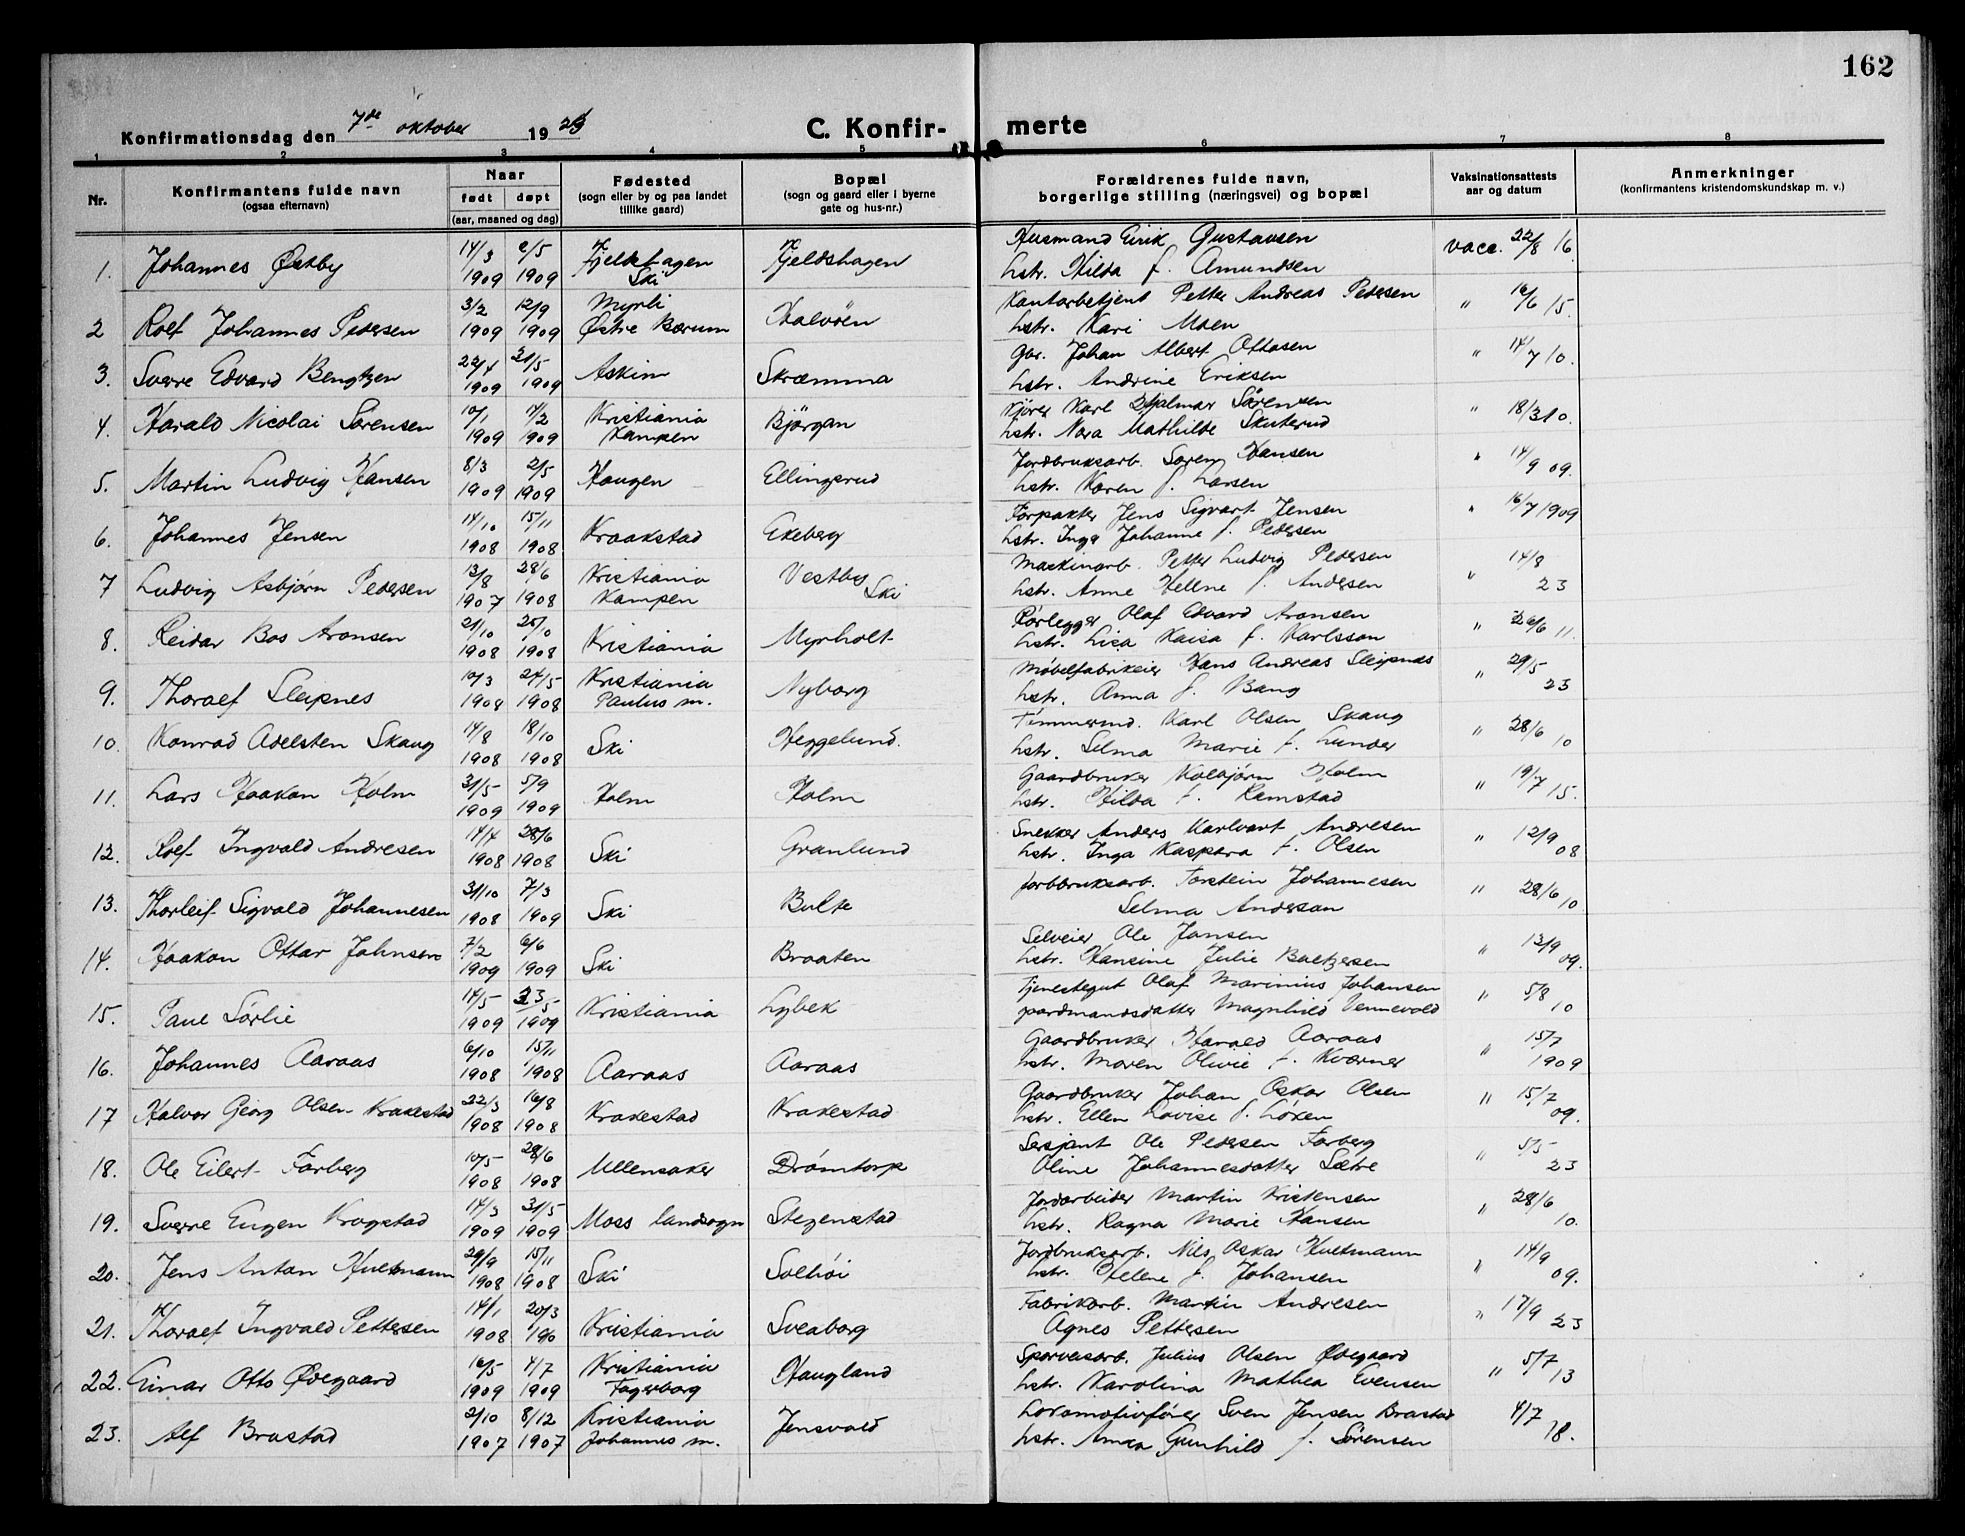 162
Konfirmationsdag den 7de oktober 1923
C. Konfir- merte
1 2 3 4 5 6 7 8
Nr.
Konfirmantens fulde navn
(ogsaa efternavn)
Naar
født døpt
(aar, maaned og dag)
Fødested
(sogn eller by og paa landet
tillike gaard)
Bopæl
(sogn og gaard eller i byerne
gate og hus-nr.)
Forældrenes fulde navn,
borgerlige stilling (næringsvei) og bopæl
Vaksinationsattests
aar og datum
Anmerkninger
(konfirmantens kristendomskundskap m. v.)
1. Johannes Østby 14/3 1909 2/5 1909 Fjeldshagen Ski Fjeldshagen Husmand Eirik Gustavsen vacc. 22/8 16.
hstr. Hilda f. Amundsen
2 Rolf Johannes Pedersen 3/2 1909 12/9 1909 Myrli Østre Bærum Halvöen Kontorbetjent Petter Andreas Pedersen " 16/6 15.
hstr. Kari Moen
3. Sverre Edvard Bengtzen 22/4 1909 31/5 1909 Askim Skræmma Gbr. Johan Albert Ottosen " 14/7 10.
hstr. Andrine Eriksen
4. Harald Nicolai Sørensen 10/1 1909 14/2 1909 Kristiania Kampen Bjørgan Kjører Karl Hjalmar Sørensen " 18/3 10.
hstr. Nora Mathilde Skuterud
5. Martin Ludvig Hansen 8/3 1909 2/5 1909 Haugen Ellingsrud Jordbruksarb. Søren Hansen " 14/9 09.
hstr. Karen f. Larsen
6. Johannes Jensen 14/10 1908 15/11 1908 Kraakstad Ekeberg Forpakter Jens Sigvart Jensen " 16/7 1909
hstr. Inga Johanne f. Pedersen
7 Ludvig Asbjørn Pedersen 13/8 1907 28/6 1908 Kristiania Kampen Vestby Ski Maskinarb. Petter Ludvig Pedersen " 14/8 23
hstr. Anne Helene f. Andersen
8. Reidar Bos Aronsen 21/10 1908 25/10 1908 Kristiania Myrholt Rørlegger Olaf Edvard Aronsen " 26/6 11.
hstr. Lisa Kaisa f. Karlsson
9. Thoralf Sleipnes 10/3 1908 24/5 1908 Kristiania Paulus m. Nyborg Møbelfabrikeier Hans Andreas Sleipnes " 29/5 23
hstr. Anna f. Bang
10. Konrad Adelsten Skaug 14/8 1908 18/10 1908 Ski Heggelund. Tømmermd. Karl Olsen Skaug " 28/6 10
hstr. Selma Marie f. Lunder
11. Lars Haakon Holm 31/5 1909 5/9 1909 Holm Holm Gaardbruker Kolbjørn Holm " 19/7 15.
hstr. Hilda f. Ramstad
12. Rolf Ingvald Andresen 14/4 1908 28/6 1908 Ski Granlund Snekker Anders Karlvart Andresen " 12/9 08
hstr. Inga Kaspara f. Olsen
13. Thorleif Sigvald Johannesen 31/10 1908 7/3 1909 Ski Bulke Jordbruksarb. Torstein Johannesen " 28/6 10
Selma Anderson
14. Haakon Ottar Johnsen 7/2 1909 6/6 1909 Ski Braaten Selveier Ole Jansen " 13/9 09.
hstr. Hansine Julie Baltzersen
15. Paul Sørlie 14/5 1909 23/5 1909 Kristiania Lybek Tjenestegut Olaf Marinius Johansen " 5/8 10
gaardmandsdatter Magnhild Vennevold
16. Johannes Aaraas 6/10 1908 15/11 1908 Aaraas Aaraas Gaardbruker Harald Aaraas " 15/7 1909
hstr. Maren Olivie f. Kværner
17 Halvor Georg Olsen Krakestad 22/3 1908 16/8 1908 Krakestad Krakestad Gaardbruker Johan Oskar Olsen " 15/7 09.
hstr. Ellen Lovise f. Løken
18. Ole Eilert Farberg 10/5 1908 28/6 1908 Ullensaker Drömtorp Sersjant Ole Pedersen Farberg " 5/5 23
Oline Johannesdatter Sætre
19. Sverre Eugen Krogstad 14/3 1909 31/5 1909 Moss landsogn Stegenstad Jordarbeider Martin Kristensen " 28/6 10.
hstr. Ragna Marie Hansen
20. Jens Anton Hultmann 29/9 1908 15/11 1908 Ski Solhöi Jordbruksarb. Nils Oskar Hultmann " 14/9 09.
hstr. Helene f. Johansen
21. Thoralf Ingvald Pettersen 14/1 1908 20/3 190 Kristiania Sveaborg Fabrikarb. Martin Andresen " 17/9 23
Agnes Pettersen
22. Einar Otto Ødegaard 16/5 1909 4/7 1909 Kristiania Fagerborg Haugland Sporveisarb. Julius Olsen Ødegaard " 5/7 13
hstr. Karolina Mathea Evensen
23. Alf Brastad 2/10 1907 8/12 1907 Kristiania Johannes m. Jensvold Lokomotivfører Sven Jensen Brastad 4/7 18.
hstr. Anna Gunhild f. Sørensen